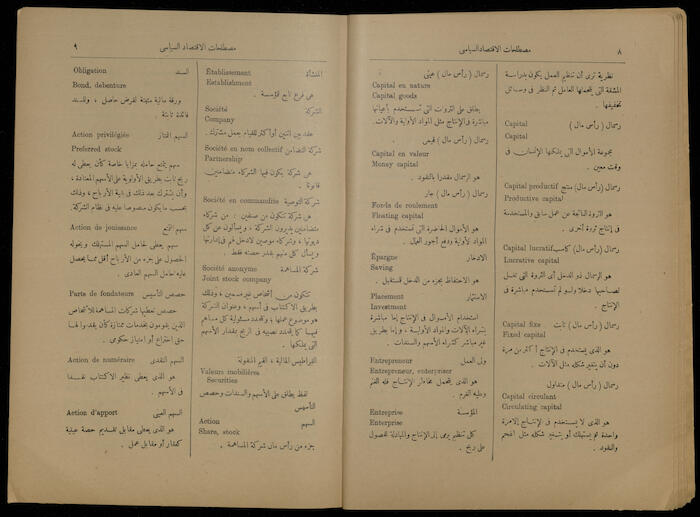 ٨
مصطلحات الاقتصاد السياسى
نظرية ترى أن تنظيم العمل يكون بدراسة
المشقة التى يتحملها العامل ثم النظر فى وسائل
تخفيفها .
رسمال ( رأس مال ) Capital
Capital
مجموعة الأموال التى يملكها الإنسان فى
وقت معين .
رسمال (رأس مال) منتج Capital productif
Productive capital
هو الثروة الناتجة عن عمل سابق والمستخدمة
فى إنتاج ثروة أخرى .
رسمال (رأس مال) كاسب Capital lucratif
Lucrative capital
هو الرسمال ذو الدخل أى الثروة التى تغل
لصاحبها دخلا ولو لم تستخدم مباشرة فى
الإنتاج .
رسمال (رأس مال) ثابت Capital fixe
Fixed capital
هو الذى يستخدم فى الإنتاج أكثر من مرة
دون أن يتغير شكله مثل الآلات .
رسمال (رأس مال) متداول
Capital circulant
Circulating capital
هو الذى لا يستخدم فى الإنتاج إلا مرة
واحدة ثم يستهلك أو يتغير شكله مثل الفحم
والنقود .
رسمال ( رأس مال ) عينى
Capital en nature
Capital goods
يطلق على الثروات التى تستخدم بأعيانها
مباشرة فى الإنتاج مثل المواد الأولية والآلات .
رسمال ( رأس مال ) قيمى
Capital en valeur
Money capital
هو الرسمال مقدرا بالنقود .
رسمال ( رأس مال ) جار
Fonds de roulement
Floating capital
هو الأموال الحاضرة التى تستخدم فى شراء
المواد الأولية ودفع أجور العمل .
الادخار Épargne
Saving
هو الاحتفاظ بجزء من الدخل للمستقبل .
الاستثمار Placement
Investment
استخدام الأموال فى الإنتاج إما مباشرة
بشراء الآلات والمواد الأولية ، وإما بطريق
غير مباشر كشراء الأسهم والسندات .
ولى العمل Entrepreneur
Entrepreneur, enterpriser
هو الذى يتحمل مخاطر الإنتاج فله الغنم
وعليه الغرم .
المؤسسة Entreprise
Enterprise
كل تنظيم يرمى إلى الإنتاج والمبادلة للحصول
على ربح .
مصطلحات الاقتصاد السياسى
٩
المنشأة Établissement
Establishment
هى فرع تابع لمؤسسة .
الشركة Société
Company
عقد بين اثنين أو أكثر للقيام بعمل مشترك .
شركة التضامن Société en nom collectif
Partnership
هى شركة يكون فيها الشركاء متضامنين
قانونا .
شركة التوصية Société en commandite
هى شركة تتكون من صنفين : من شركاء
متضامنين يديرون الشركة ، ويسألون عن كل
ديونها ، وشركاء موصين لا دخل لهم فى إدارتها
ويسأل كل منهم بقدر حصته فقط .
Société anonyme
شركة المساهمة Joint stock company
تتكون من أشخاص غير معينين ، وذلك
بطريق الاكتتاب فى أسهم ، وعنوان الشركة
هو موضوع عملها ؛ وتتحدد مسئولية كل مساهم
فيها كما يتحدد نصيبه فى الربح بمقدار الأسهم
التى يملكها .
القراطيس المالية ، القيم المنقولة
Valeurs mobilières
Securities
لفظ يطلق على الأسهم والسندات وحصص
التأسيس
السهم Action
Share, stock
جزء من رأس مال شركة المساهمة .
السند Obligation
Bond, debenture
ورقة مالية مثبتة لقرض حاصل ، وللسند
فائدة ثابتة .
السهم الممتاز Action privilégiée
Preferred stock
سهم يتمتع حامله بمزايا خاصة كأن يعطى له
ربح ثابت بطريق الأولوية على الأسهم المعتادة ،
وأن يشترك بعد ذلك فى بقية الأرباح ، وذلك
بحسب ما يكون منصوصا عليه فى نظام الشركة .
سهم التمتع Action de jouissance
سهم يعطى لحامل السهم المستهلك ويخوله
الحصول على جزء من الأرباح أقل مما يحصل
عليه حامل السهم العادى .
حصص التأسيس Parts de fondateurs
حصص تعطيها شركات المساهمة للأشخاص
الذين يقومون بخدمات ممتازة كأن يقدموا لها
حق اختراع أو امتياز حكومى .
السهم النقدى Action de numéraire
هو الذى يعطى نظير الاكتتاب نقدا
فى الأسهم .
السهم العينى Action d'apport
هو الذى يعطى مقابل تقديم حصة عينية
كعقار أو مقابل عمل .